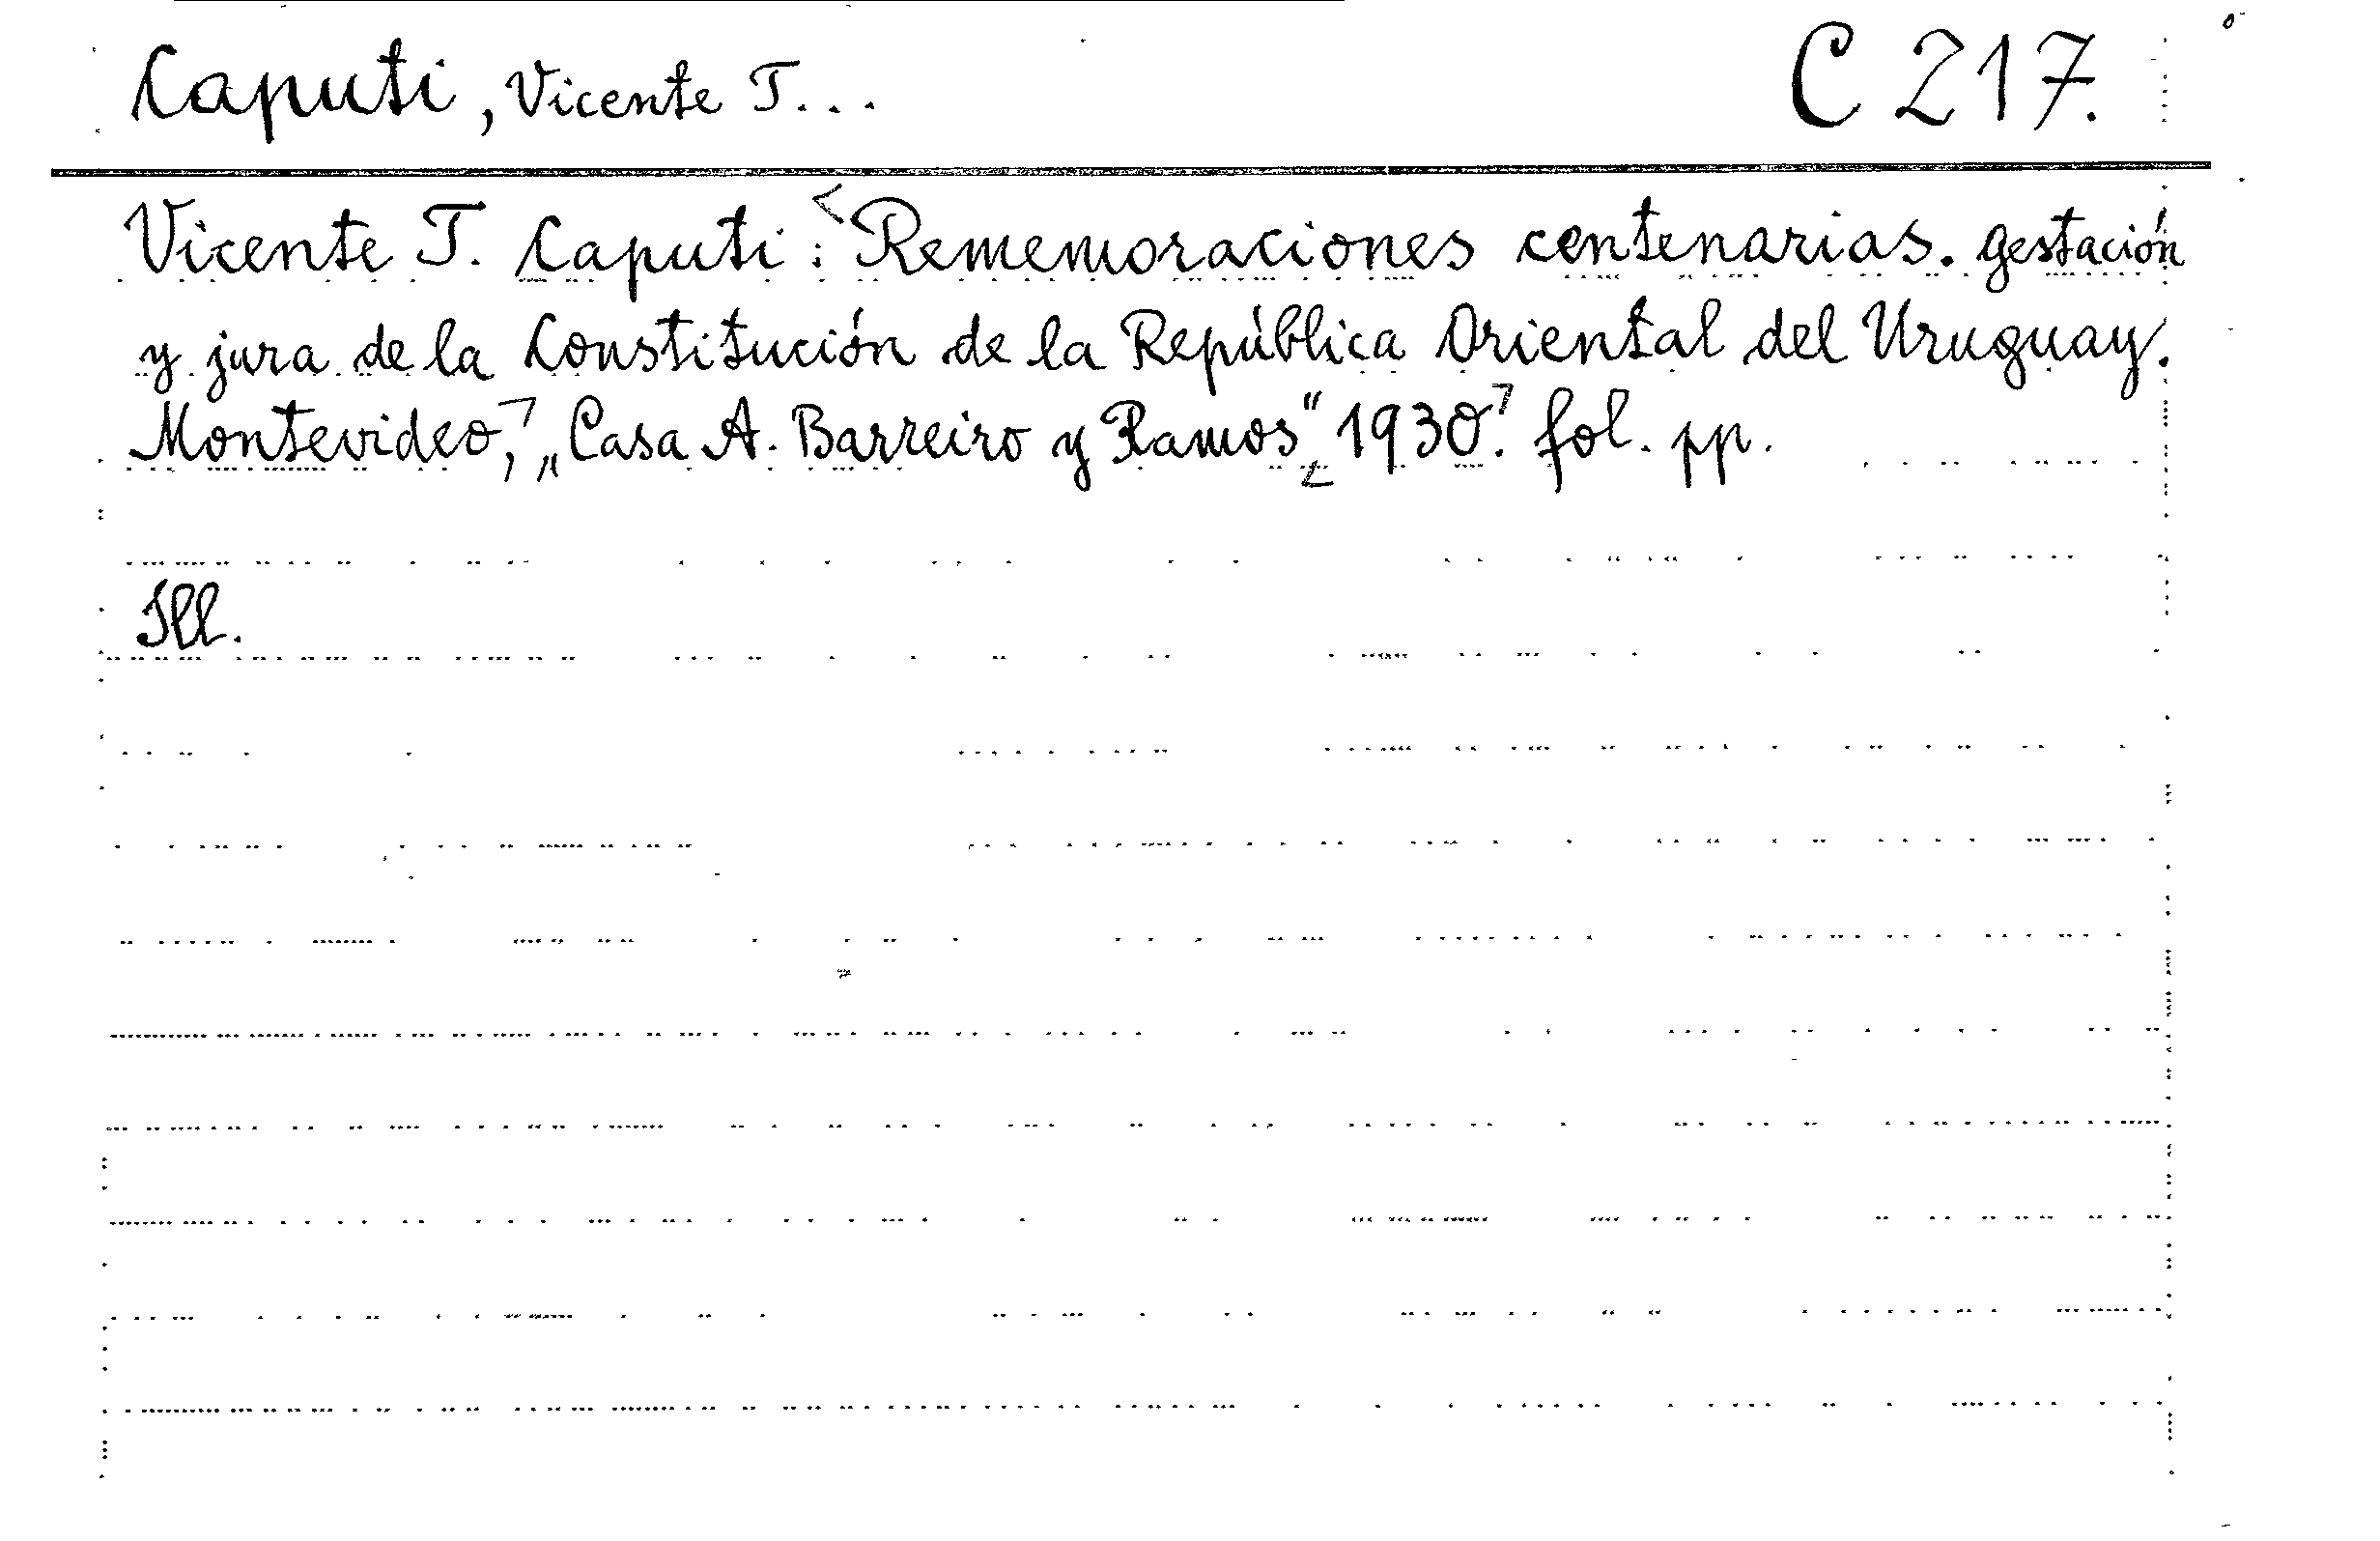 Caputi, Vicente T... C 217.
Vicente T. Caputi: Rememoraciones centenarias. Gestación
y jura de la Constitución de la República Oriental del Uruguay.
Montevideo, „Casa A. Barreiro y Ramos" 1930. fol. pp.
Ill.